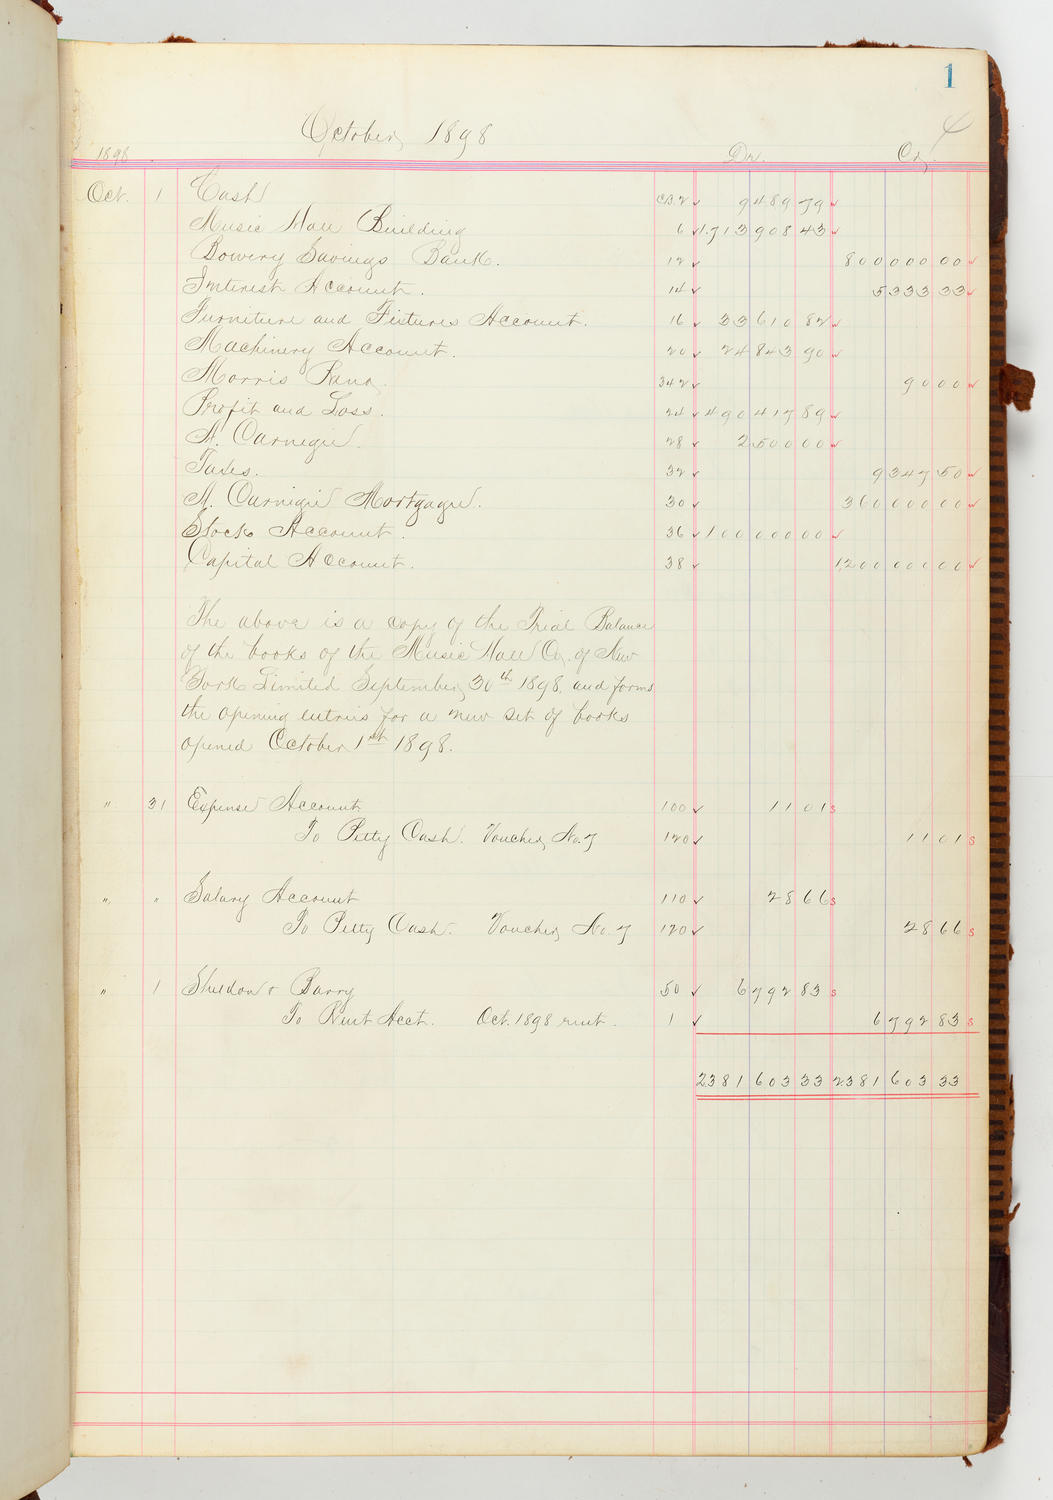 1
October, 1898
1898 Dr. Cr.
Oct. 1 Cash C.B.2 ✓ 9489 79 ✓
Music Hall Building 6 ✓ 1713908 43 ✓
Bowery Savings Bank. 12 ✓ 800000 00 ✓
Interest Account. 14 ✓ 5333 33 ✓
Furniture and Fixtures Account. 16 ✓ 33610 82 ✓
Machinery Account. 20 ✓ 24843 90 ✓
Morris 342 ✓ 90 00 ✓
Profit and Loss. 24 ✓ 490417 89 ✓
A. Carnegie. 28 ✓ 2500 00 ✓
Taxes. 32 ✓ 9347 50 ✓
A. Carnegie Mortgage. 30 ✓ 360000 00 ✓
Stock Account. 36 ✓ 100000 00 ✓
Capital Account. 38 ✓ 1200000 00 ✓
The above is a copy of the Trial Balance
of the books of the Music Hall Co. of New
York Limited September 30th 1898. and forms
the opening entries for a new set of books
opened October 1st 1898.
" 31 Expense Account 100 ✓ 11 01 s
To Petty Cash. Voucher, No. 7 120 ✓ 11 01 s
" " Salary Account 110 ✓ 28 66 s
To Petty Cash. Voucher, No. 7 120 ✓ 28 66 s
" 1 Sheldon & Barry 50 ✓ 6792 83 s
To Rent Acct. Oct. 1898 rent. 1 ✓ 6792 83 s
2381603 33 2381603 33